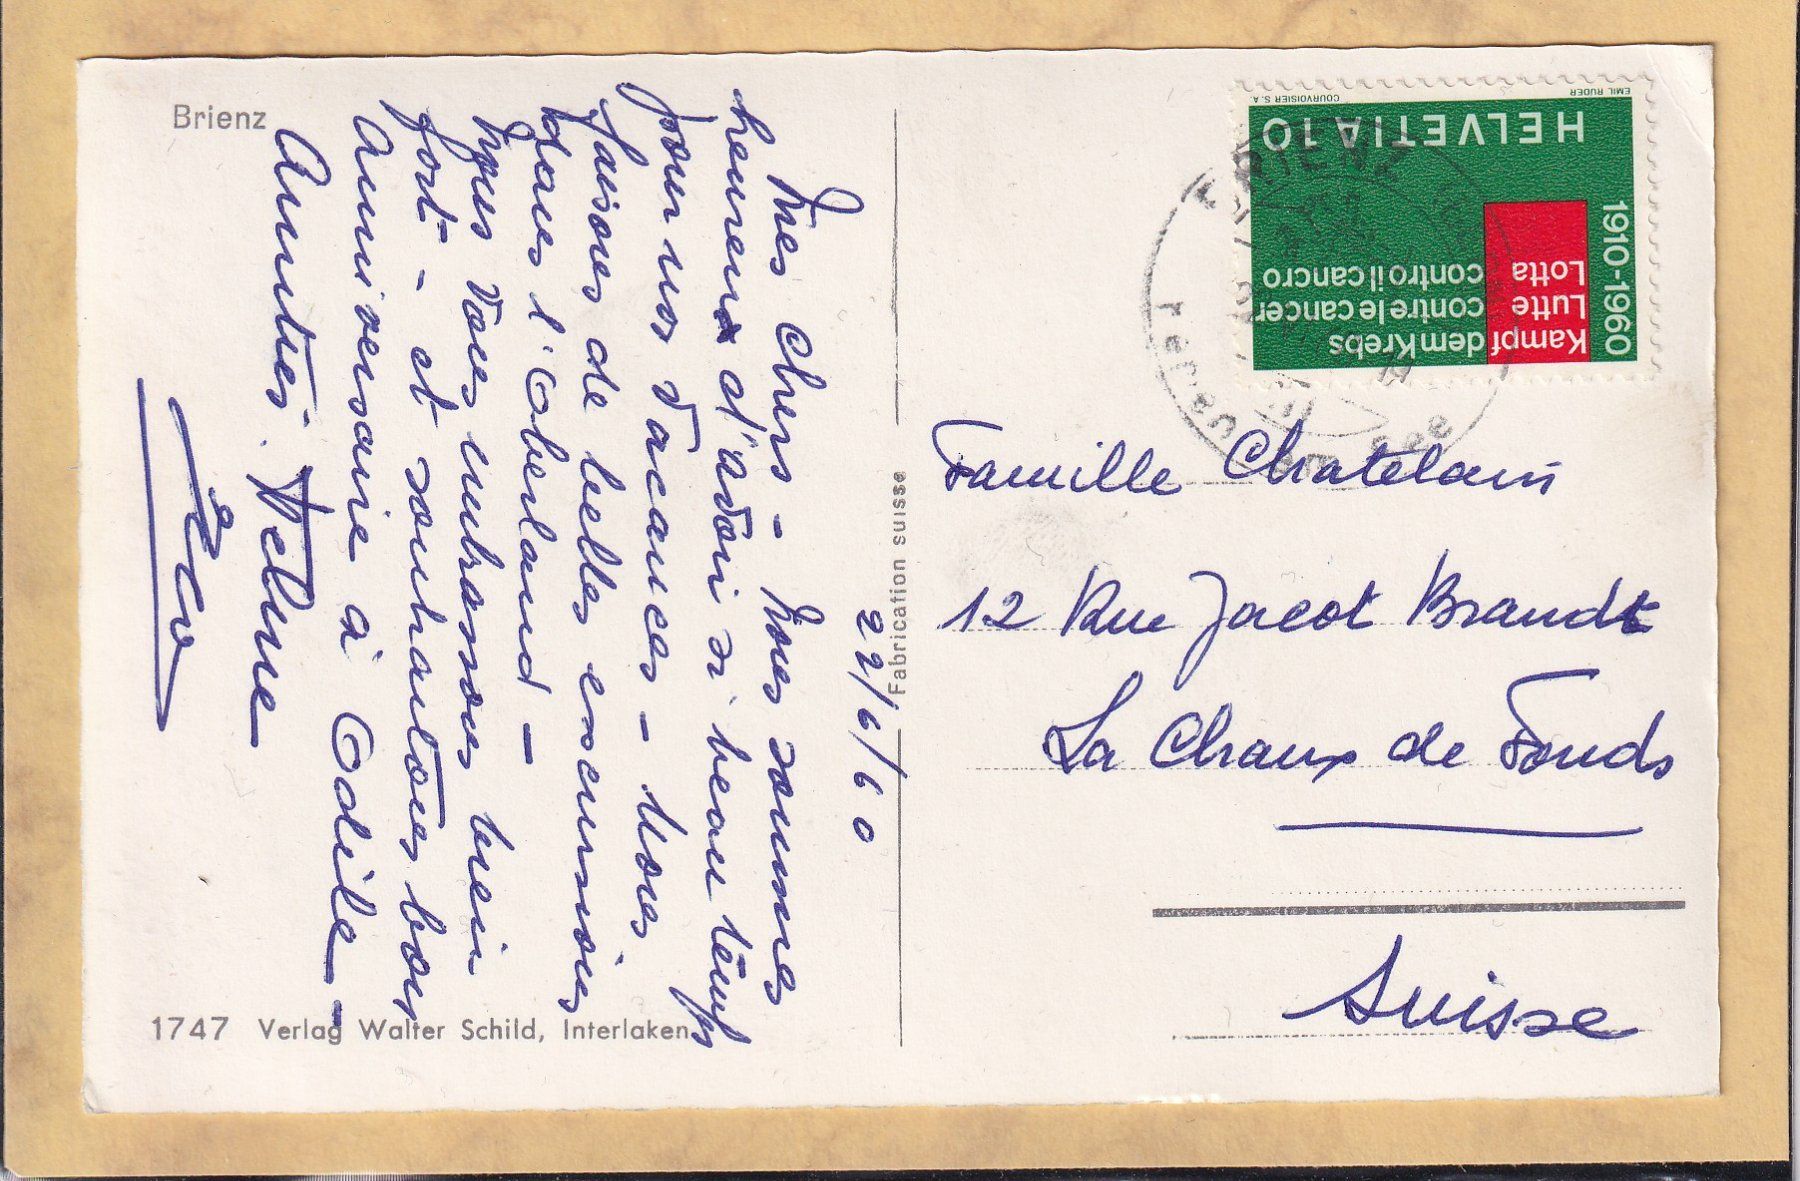 Brienz
22/6/60
Mes chers - Nous sommes
heureux d'avoir si beau temps
pour nos vacances - Nous
faisons de belles excursions
dans l'Oberland -
Nous vous embrassons bien
fort - et souhaitons bon
Anniversaire à Odile -
Amitiés.
1747 Verlag Walter Schild, Interlaken
Fabrication suisse
EMIL RUDER
COURVOISIER S.A.
HELVETIA 10
1910-1960
Kampf dem Krebs
Lutte contre le cancer
Lotta contro il cancro
BRIENZ
Famille Chatelain
12 Rue Jacot Brandt
La Chaux de Fonds
Suisse